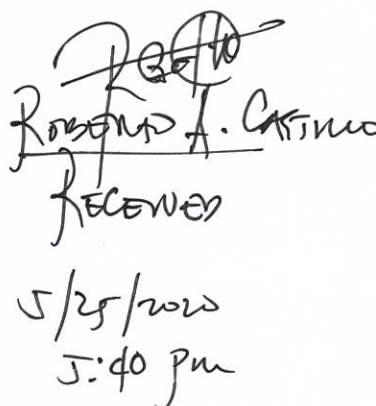 ROBERTO A. CASTILLO
RECEIVED
5/25/2020
5:40 pm